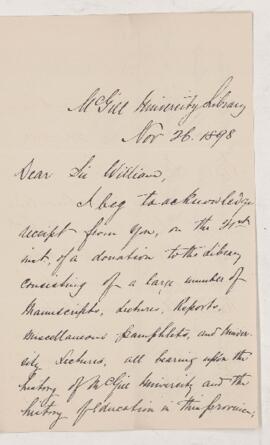 McGill University Library
Nov 26. 1898
Dear Sir William,
I beg to acknowledge
receipt from you, on the 21st
inst. of a donation to the Library
consisting of a large number of
Manuscripts, Lectures, Reports,
Miscellaneous Pamphlets, and Univer-
sity Lectures, all bearing upon the
history of McGill University and the
history of education in this province;